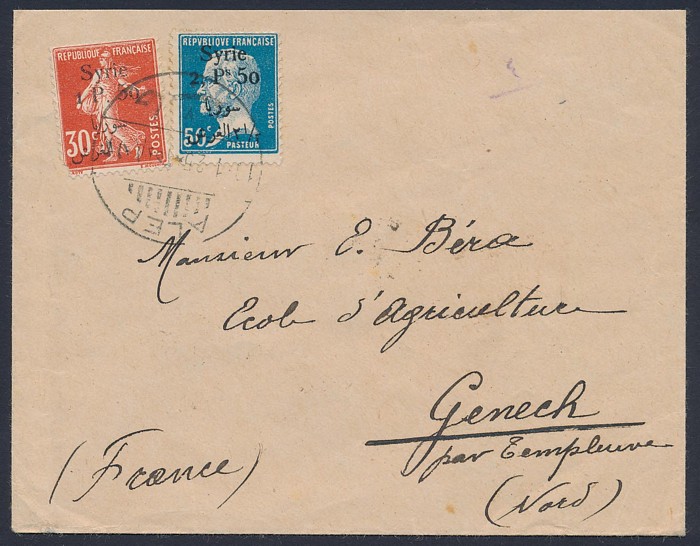 RÉPUBLIQUE FRANÇAISE
Syrie
1 P. 50
سوريا
30c
POSTES
RÉPUBLIQUE FRANÇAISE
Syrie
2. Ps 50
POSTES
سوريا
٢ ١/٢ الغرش
50c
PASTEUR
ALEP
Monsieur E. Béra
Ecole d'Agriculture
Genech
par Templeuve
(Nord)
(France)